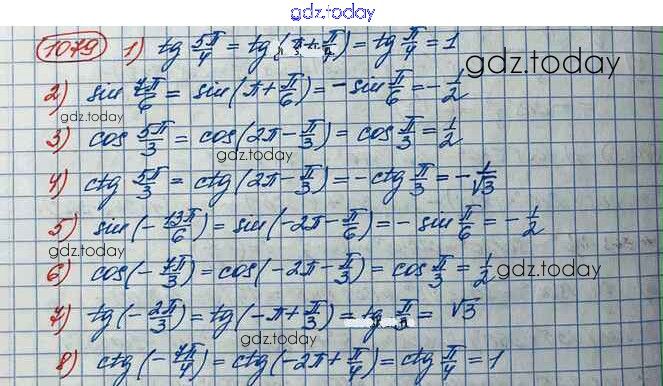 gdz.today
1079 1) tg 5π/4 = tg(π+π/4) = tg π/4 = 1
gdz.today
2) sin 7π/6 = sin(π+π/6) = -sin π/6 = -1/2
gdz.today
3) cos 5π/3 = cos(2π-π/3) = cos π/3 = 1/2
gdz.today
4) ctg 5π/3 = ctg(2π-π/3) = -ctg π/3 = -1/√3
5) sin(-13π/6) = sin(-2π-π/6) = -sin π/6 = -1/2
6) cos(-7π/3) = cos(-2π-π/3) = cos π/3 = 1/2
gdz.today
7) tg(-2π/3) = tg(-π+π/3) = tg π/3 = √3
gdz.today
8) ctg(-7π/4) = ctg(-2π+π/4) = ctg π/4 = 1